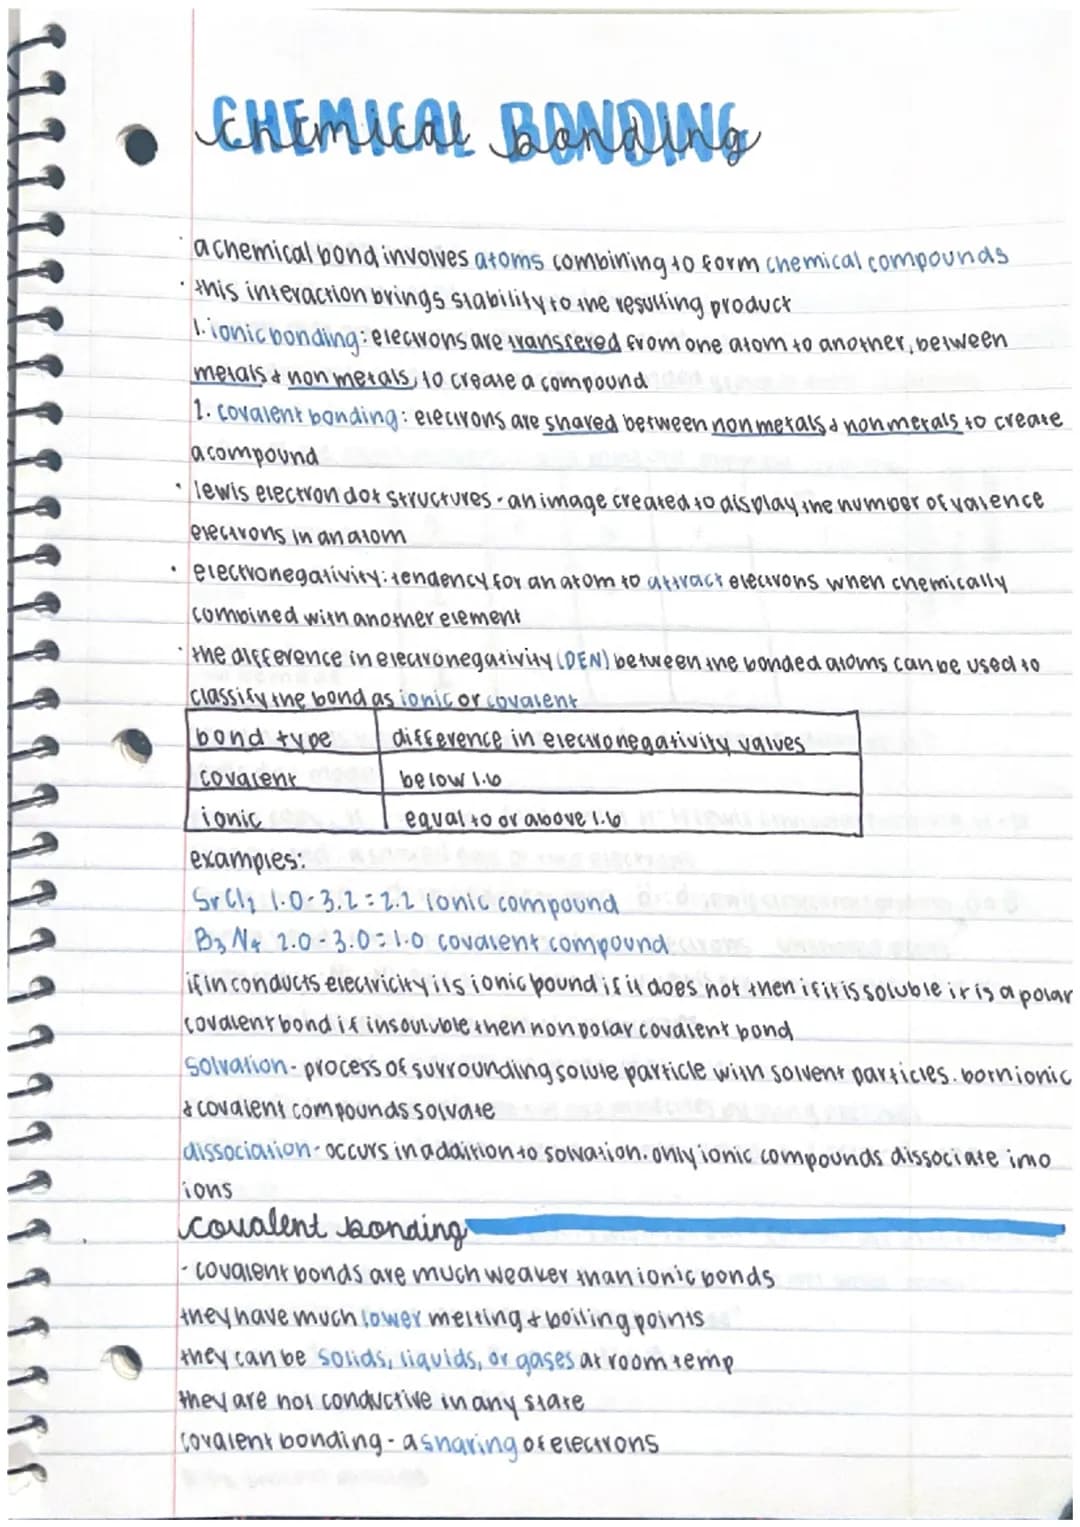 CHEMICAL BONDING
chemical bonding
· a chemical bond involves atoms combining to form chemical compounds
· this interaction brings stability to the resulting product
1. ionic bonding: electrons are transfered from one atom to another, between
metals & non metals, to create a compound
2. covalent bonding: electrons are shared between nonmetals & nonmetals to create
a compound
· lewis electron dot structures - an image created to display the number of valence
electrons in an atom
· electronegativity: tendency for an atom to attract electrons when chemically
combined with another element
· the difference in electronegativity (DEN) between the bonded atoms can be used to
classify the bond as ionic or covalent
bond type difference in electronegativity values
covalent below 1.6
ionic equal to or above 1.6
examples:
SrCl2 1.0-3.2=2.2 ionic compound
B3 N4 2.0-3.0=1.0 covalent compound
if in conducts electricity its ionic bound if it does not then if it is soluble it is a polar
covalent bond if insoulvble then nonpolar covalent bond
solvation - process of surrounding solute particle with solvent particles. both ionic
& covalent compounds solvate
dissociation - occurs in addition to solvation. only ionic compounds dissociate into
ions
covalent bonding
- covalent bonds are much weaker than ionic bonds
they have much lower melting & boiling points
they can be solids, liquids, or gases at room temp
they are not conductive in any state
covalent bonding - a sharing of electrons